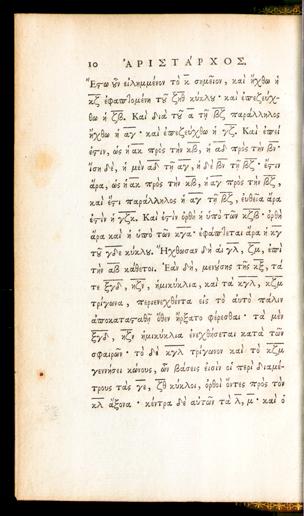 10 ἈΡΙΣΤΑΡΧΟΣ.
Ἔστω οὖν εἰλημμένον τὸ κ σημεῖον, καὶ ἤχθω ἡ
κζ ἐφαπτομένη τοῦ ζηθ κύκλου· καὶ ἐπεζεύχ-
θω ἡ ζβ. Καὶ διὰ τοῦ α τῇ βζ παράλληλος
ἤχθω ἡ αγ· καὶ ἐπεζεύχθω ἡ γζ. Καὶ ἐπεί
ἐστιν, ὡς ἡ ακ πρὸς τὴν κβ, ἡ αδ πρὸς τὴν βι·
ἴση δὲ, ἡ μὲν αδ τῇ αγ, ἡ δὲ βι τῇ βζ· ἔστιν
ἄρα, ὡς ἡ ακ πρὸς τὴν κβ, ἡ αγ πρὸς τὴν βζ,
καὶ ἔστι παράλληλος ἡ αγ τῇ βζ, εὐθεῖα ἄρα
ἐστὶν ἡ γζκ. Καὶ ἐστὶν ὀρθὴ ἡ ὑπὸ τῶν κζβ· ὀρθὴ
ἄρα καὶ ἡ ὑπὸ τῶν κγα· ἐφάπτεται ἄρα ἡ κγ
τῇ γδε κύκλου. Ἤχθωσαν δὴ αἱ γλ, ζμ, ἐπὶ
τὴν αβ κάθετοι. Ἐὰν δὴ, μενούσης τῆς κξ, τά
τε ξγδ, ηζν, ἡμικύκλια, καὶ τὰ κγλ, κζμ
τρίγωνα, περιενεχθέντα εἰς τὸ αὐτὸ πάλιν
ἀποκατασταθῇ ὅθεν ἤρξατο φέρεσθαι· τὰ μὲν
ξγδ, ηζν ἡμικύκλια ἐνεχθήσεται κατὰ τῶν
σφαιρῶν· τὸ δὲ κγλ τρίγωνον καὶ τὸ κζμ
γεννήσει κώνους, ὧν βάσεις εἰσὶν οἱ περὶ διαμέ-
τρους τὰς γε, ζθ κύκλοι, ὀρθοὶ ὄντες πρὸς τὸν
κλ ἄξονα· κέντρα δὲ αὐτῶν τὰ λ, μ· καὶ ὁ